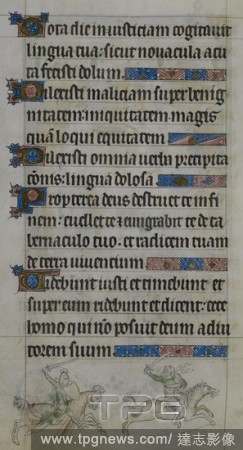 Tota die iniusticiam cogitauit
lingua tua: sicut nouacula acu
ta fecisti dolum.
Dilexisti maliciam super benig
nitatem: iniquitatem magis
quā loqui equitatem
Dilexisti omnia uerba p̄cipita
cōnis: lingua dolosa.
Propterea deus destruet te in fi
nem: euellet te ⁊ emigrabit te de ta
bernaculo tuo. et radicem tuam
de terra uiuentium
Uidebunt iusti et timebunt et
super eum ridebunt et dicent: ecce
homo qui nō posuit deum adiu
torem suum.
TPG
www.tpgnews.com / 達志影像